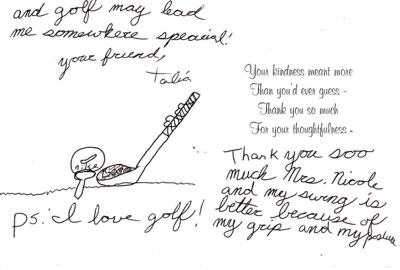 and golf may lead
me somewhere speacial!
your friend,
Talia
nike
ps: I love golf!
Your kindness meant more
Than you'd ever guess -
Thank you so much
For your thoughtfulness -
Thank you soo
much Mrs. Nicole
and my swing is
better because of
my grip and my posture